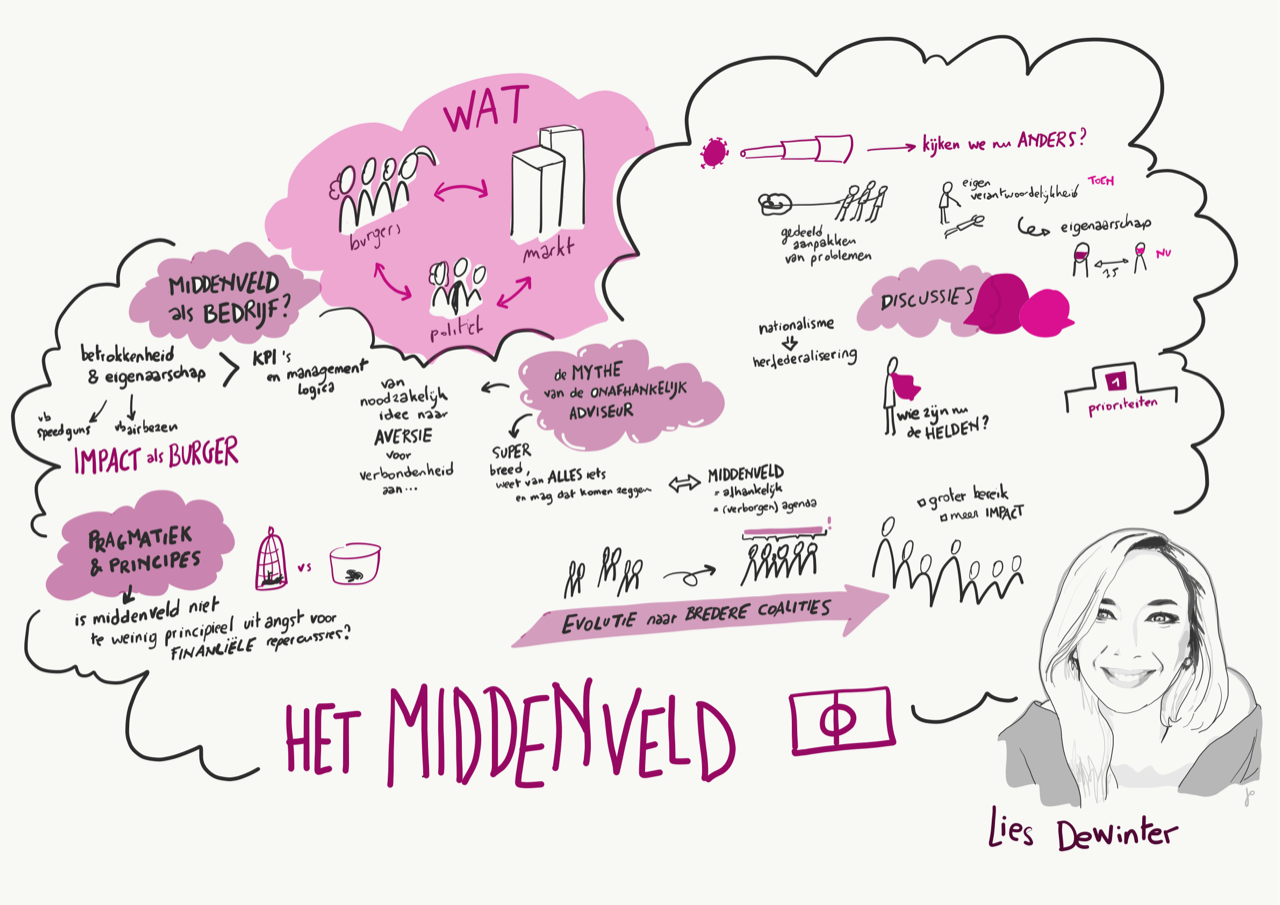 WAT
burgers
markt
politiek
MIDDENVELD
als BEDRIJF?
betrokkenheid
& eigenaarschap
>
KPI's
en management
logica
vb
speedguns
vb airbezen
IMPACT als BURGER
PRAGMATIEK
& PRINCIPES
vs
is middenveld niet
te weinig principieel uit angst voor
FINANCIËLE repercussies?
de MYTHE
van de ONAFHANKELIJK
ADVISEUR
van
noodzakelijk
idee naar
AVERSIE
voor
verbondenheid
aan...
SUPER
breed,
weet van ALLES iets
en mag dat komen zeggen
MIDDENVELD
= afhankelijk
= (verborgen) agenda
!
EVOLUTIE naar BREDERE COALITIES
groter bereik
meer IMPACT
kijken we nu ANDERS?
gedeeld
aanpakken
van problemen
eigen
verantwoordelijkheid TOCH
eigenaarschap
1,5
NU
DISCUSSIES
nationalisme
herfederalisering
wie zijn nu
de HELDEN?
1
prioriteiten
HET MIDDENVELD
Lies Dewinter